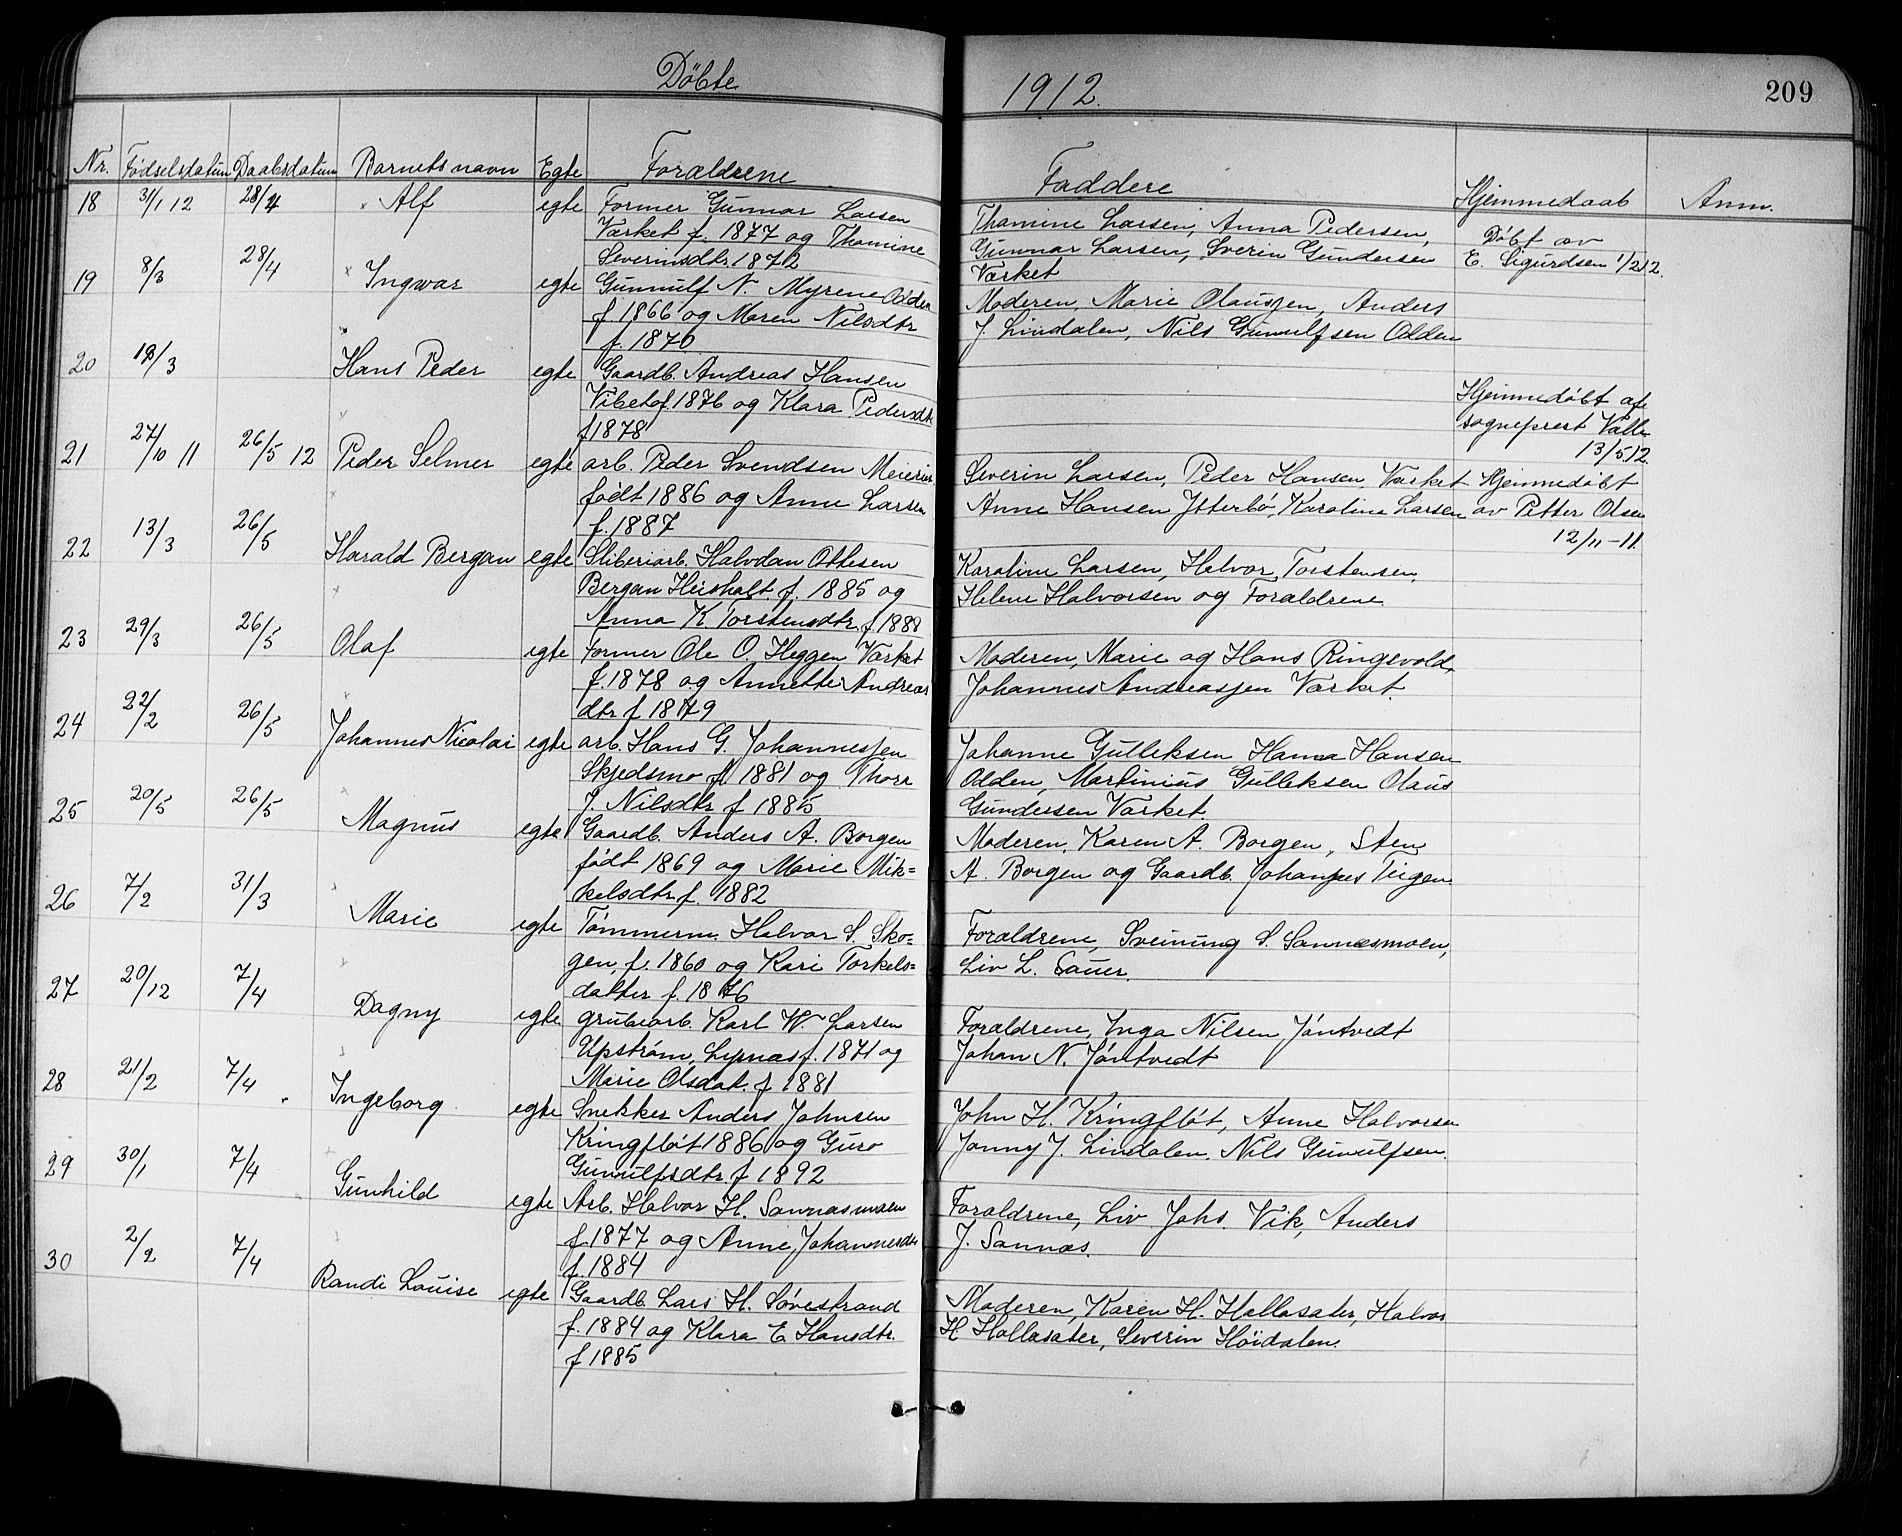 Döbte 1912. 209
Nr. Fødselsdatum Daabsdatum Barnets navn Egte Forældrene Faddere Hjemmedaab Anm.
18 31/1 12 28/4 Alf egte Former Gunnar Larsen
Værket f. 1877 og Thomine
Severinsdtr. 1872
Thomine Larsen, Anna Pedersen,
Gunnar Larsen, Sverin Gundersen
Værket
Döbt av
E. Sigurdsen 1/2 12.
19 8/3 28/4 Ingwar egte Gunnulf N. Myrene Odden
f. 1866 og Maren Nilsdtr
f. 1870
Moderen, Marie Olaussen, Anders
J. Lindalen, Nils Gunulfsen Odden
20 18/3 Hans Peder egte Gaardb. Andreas Hansen
Vibeto f. 1876 og Klara Pedersdtr
f 1878
Hjemmedöbt af
sogneprest Valle
13/5 12.
21 27/10 11 26/5 12 Peder Selmer egte arb. Peder Svendsen
født 1886 og Anne Larsen
f. 1887
Severin Larsen, Peder Hansen, Værket
Anne Hansen Ytterbö, Karoline Larsen
Hjemmedöbt
av Petter Olsen
12/11-11.
22 13/3 26/5 Harald Bergan egte Sliberiarb. Halvdan Ottesen
Bergan Heisholt. f. 1885 og
Anna K Torstensdtr. f 1888
Karoline Larsen, Halvor Torstensen,
Helene Halvorsen og Forældrene
23 29/3 26/5 Olaf egte Former Ole O. Heggen Værket
f. 1878 og Annette Andreas
dtr f 1879
Moderen, Marie og Hans Ringsvold,
Johannes Andreassen Værket.
24 22/2 26/5 Johannes Nicolai egte arb. Hans G. Johannessen
Skjedsmo f. 1881 og Thora
J. Nilsdtr f 1885
Johanne Gulleksen Hanna Hansen
Odden, Martinius Gulleksen Olaus
Gundersen Værket.
25 20/5 26/5 Magnus egte Gaardb. Anders A. Borgen
født 1869 og Marie Mik-
kelsdtr. f. 1882
Moderen, Karen A. Borgen, Sten
A. Borgen og Gaardb. Johannes Teigen.
26 7/2 31/3 Marie egte Tømmerm. Halvor S. Sko-
gen, f. 1860 og Kari Torkels-
datter f. 1876
Forældrene, Sveinung S. Sannesmoen,
Liv L. Sauer.
27 20/12 7/4 Dagny egte grubearb. Karl W. Larsen
Upström, f. 1871 og
Marie Olsdat. f 1881
Forældrene, Inga Nilsen Jöntvedt
Johan N. Jöntvedt
28 21/2 7/4 Ingeborg egte Snekker Anders Johnsen
Kringflöt 1886 og Guro
Gunulfsdtr. f 1892
John H. Kringflöt, Anne Halvorsen
Jonny J. Lindalen. Nils Gunulfsen.
29 30/1 7/4 Gunhild egte Arb. Halvor H. Sannæsmoen
f. 1877 og Anne Johannesdtr
f. 1884
Forældrene, Liv Johs. Vik, Anders
J. Sannæs.
30 2/2 7/4 Randi Louise egte Gaardb. Lars H. Sövestrand
f. 1884 og Klara E. Hansdtr.
f 1885
Moderen, Karen H. Hollasæter, Halvor
H Hollasæter, Severin Höidalen.